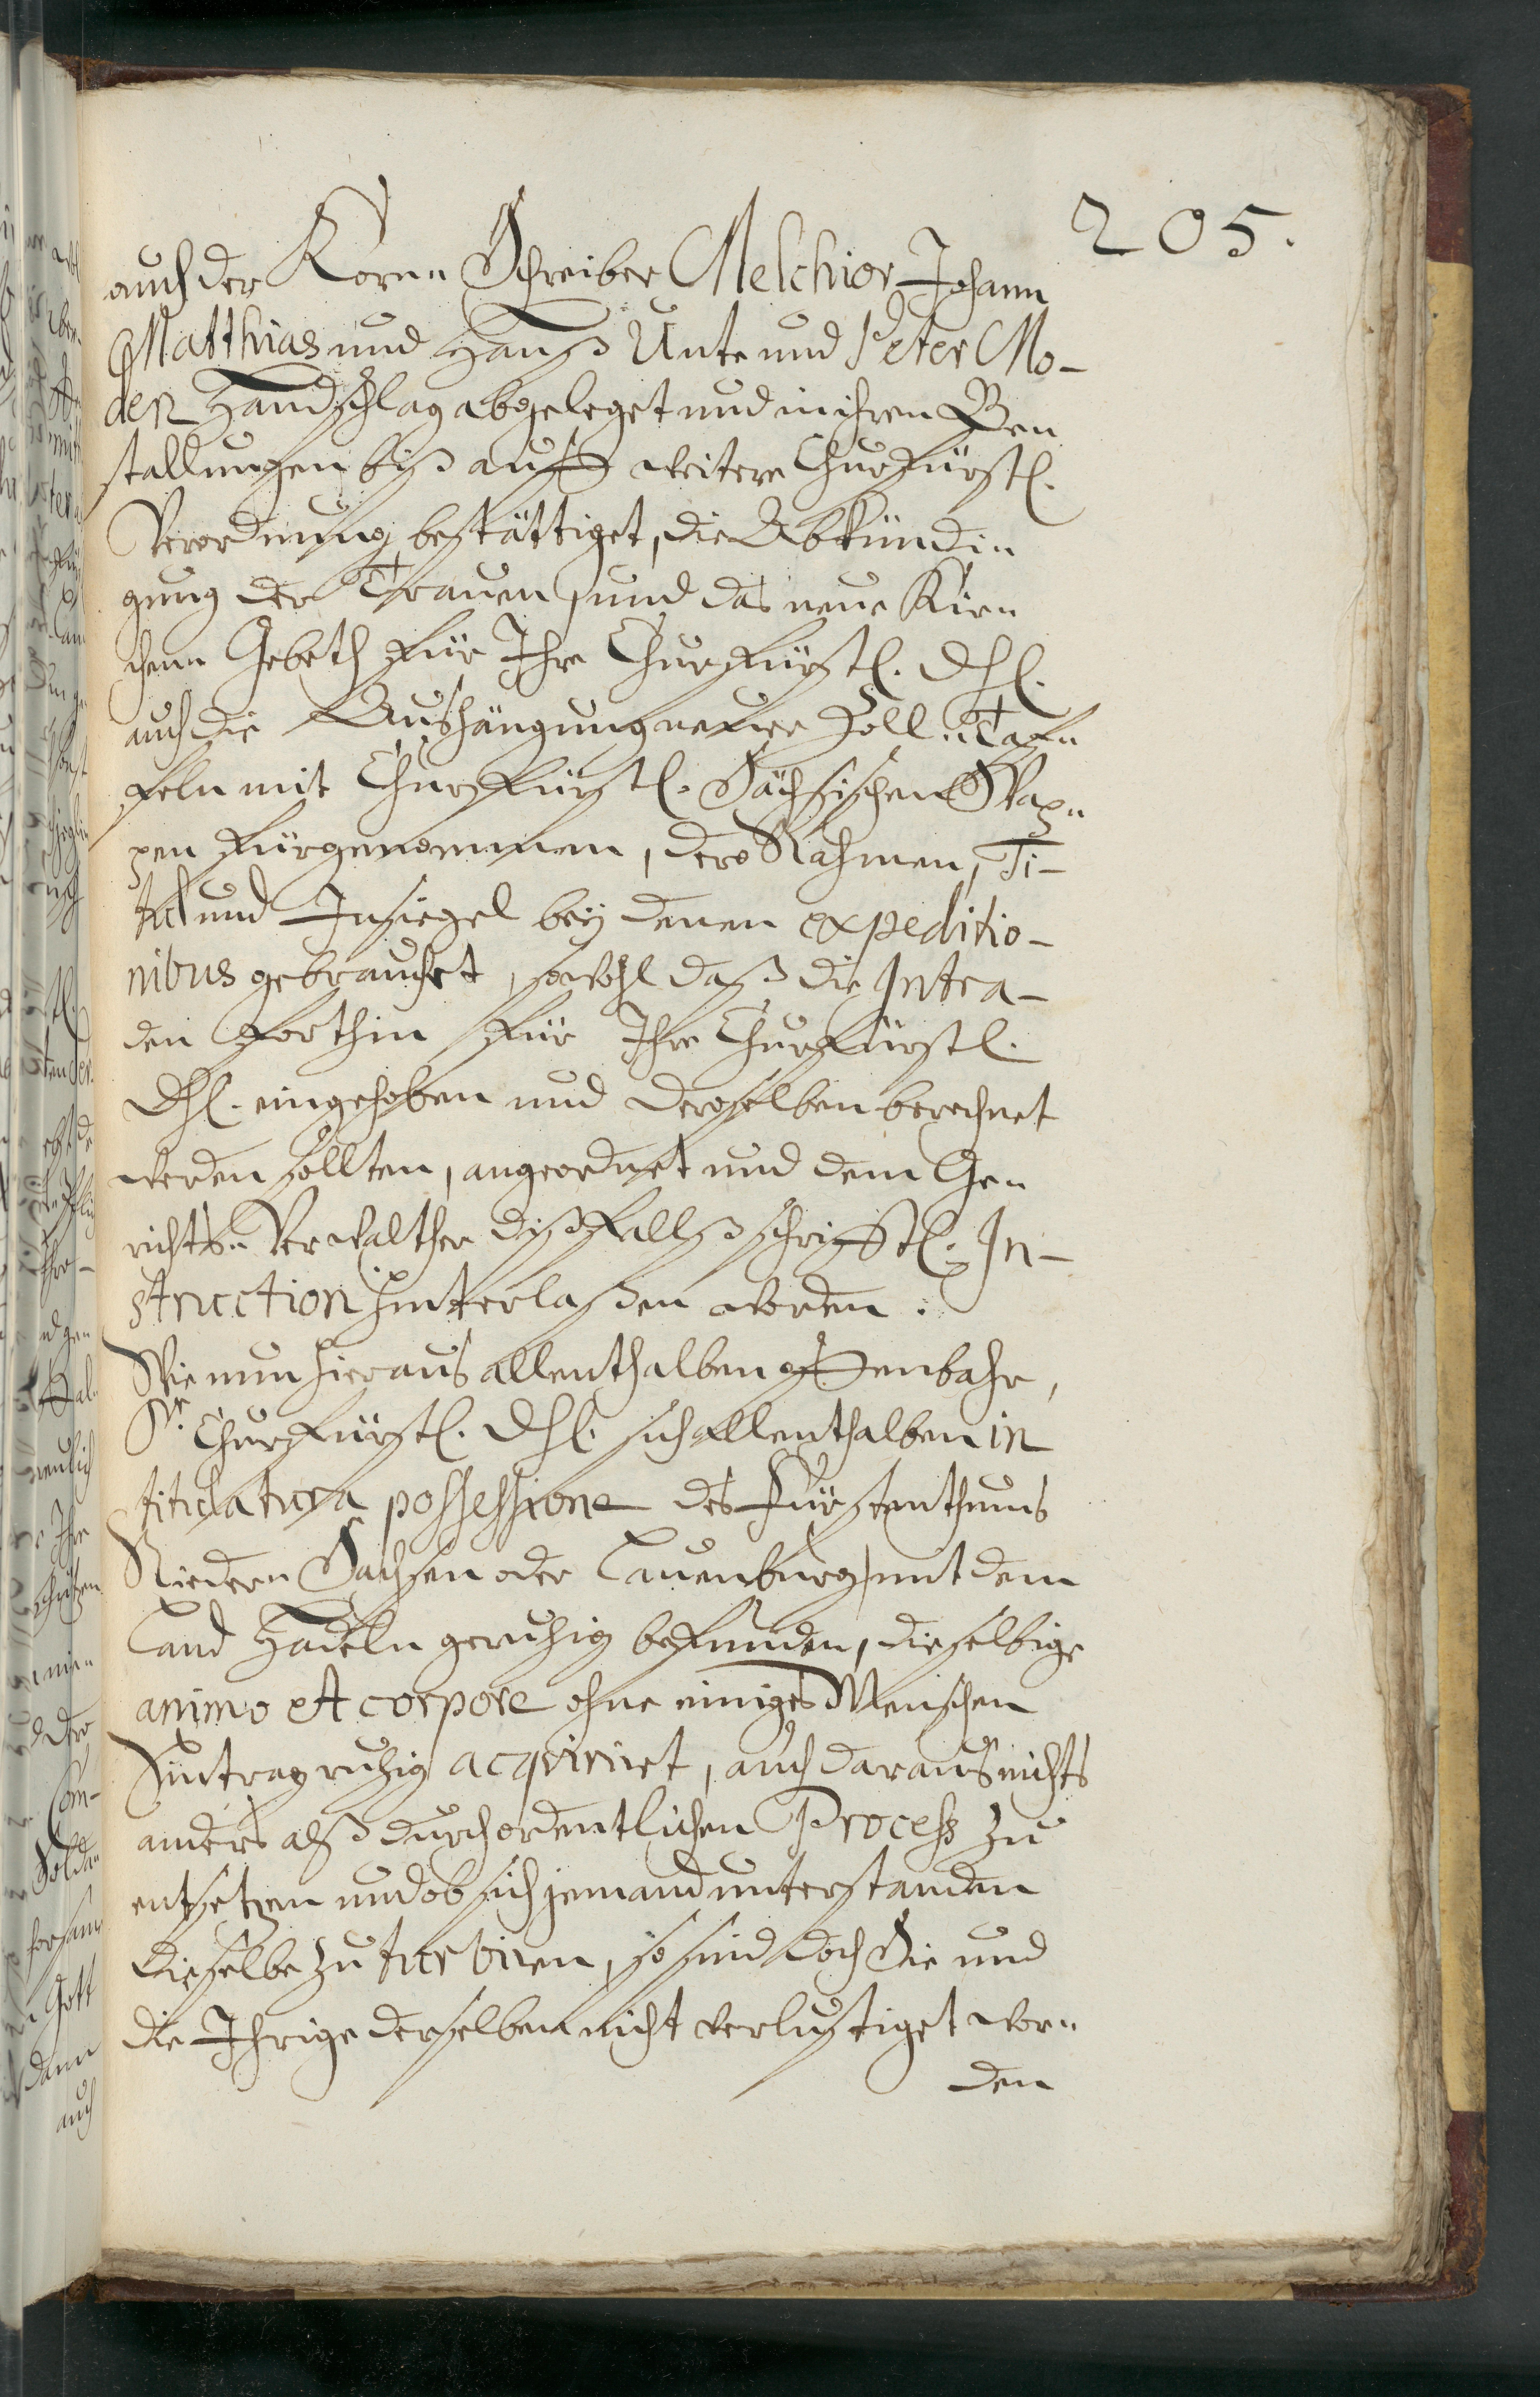 205.
auch der Korn- Schreiber Melchior Johann
Matthias und Hanß Unte und Peter Mo-
den Handschlag abgeleget und in ihren Be-
stallungen biß auff weitere Churfürstl.
Verordnung bestättiget, die Abkündi-
gung der Trauer, und das neue Kir-
chen- Gebeth für Ihre Churfürstl. Dhl.
auch die Aushängung neuer Zoll- Taf-
feln mit Churfürstl. Sächsischen Wap-
pen fürgenommen, dero Nahmen, Ti-
tul und Insiegel bey denen expeditio-
nibus gebrauchet, sowohl daß die Intra-
den forthin für Ihre Churfürstl.
Dhl. eingehoben und deroselben berechnet
werden sollten, angeordnet und dem Ge-
richts- Verwalther dißfallß schrifftl. In-
struction hinterlaßen worden:
Wie nun hieraus allenthalben offenbahr,
Sr. Churfürstl. Dhl. sich allenthalben in
titulatura possessione des Fürstenthums
Nieder- Sachsen oder Lauenburg, mit dem
Land Hadeln geruhig befunden, dieselbige
animo et corpore ohne einiges Menschen
Eintrag ruhig acqviriret, auch daraus nichts
anders alß durch ordentlichen Process zu
entsetzen und ob sich jemand unterstanden
dieselbe zu turbiren, so sind doch Sie und
die Ihrige derselben nicht verlustiget wor-
den